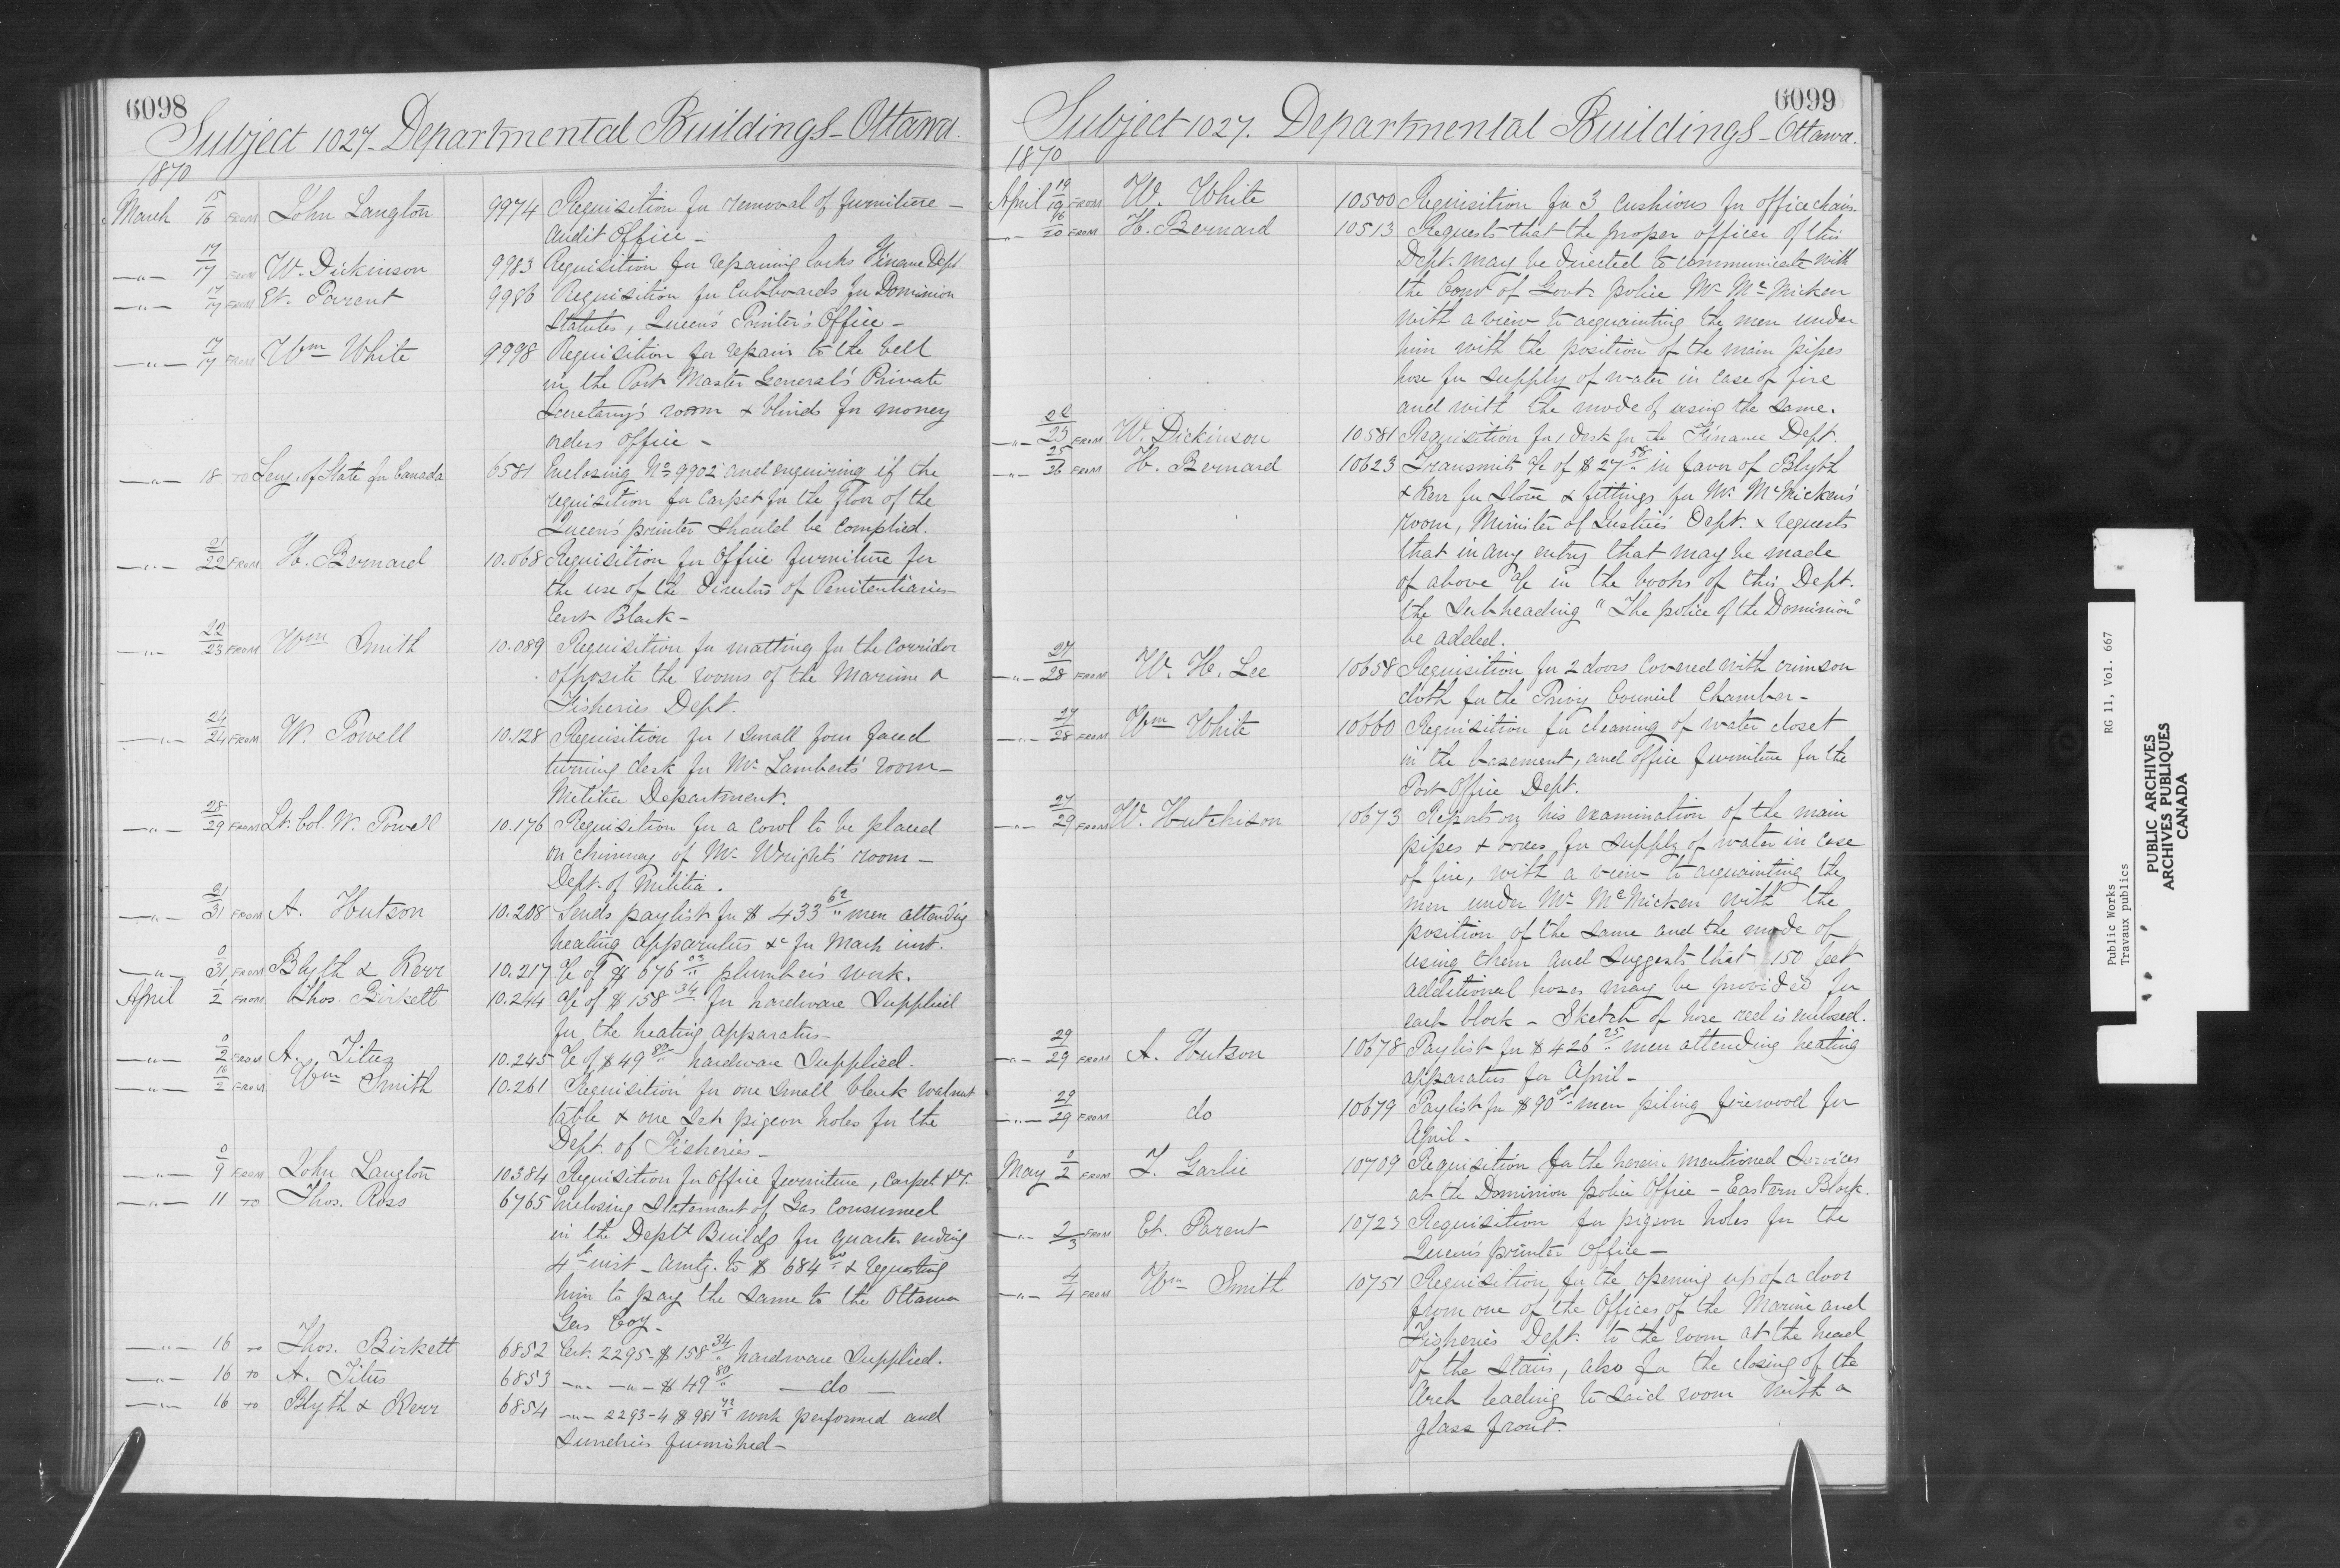 6098
Subject 1027. Departmental Buildings - Ottawa.
1870
March 15/16 FROM John Langton 9974 Requisition for removal of furniture -
Audit Office -
-"- 17/17 FROM W. Dickinson 9983 Requisition for repairing locks Finance Dept.
-"- 17/17 FROM Et. Parent 9986 Requisition for Cubboards for Dominion
Statutes, Queen's Printer's Office -
-"- 17/17 FROM Wm White 9998 Requisition for repair to the bell
in the Post Master General's Private
Secretary's room & blinds for money
orders office -
-"- 18 TO Secy. of State for Canada 6581 Enclosing No 9902 and enquiring if the
requisition for carpet for the floor of the
Queen's printer should be complied.
-"- 21/22 FROM H. Bernard 10.068 Requisition for Office furniture for
the use of the Directors of Penitentiaries
East Block -
-"- 22/23 FROM Wm Smith 10.089 Requisition for matting for the corridor
opposite the rooms of the Marine &
Fisheries Dept.
-"- 24/24 FROM W. Powell 10.128 Requisition for 1 small four faced
turning desk for Mr. Lambert's room -
Militia Department.
-"- 28/29 FROM Lt. Col. W. Powell 10.176 Requisition for a cowl to be placed
on chimney of Mr. Wright's room -
Dept. of Militia.
-"- 31/31 FROM A. Hutson 10.208 Sends paylist for $ 433 62/" men attending
heating apparatus &c for March inst.
-"- 0/31 FROM Blyth & Kerr 10.217 a/c of $ 676 03/" plumber's work.
April 1/2 FROM Thos. Birkett 10.244 a/c of $ 158 34/" for hardware supplied
for the heating apparatus -
-"- 0/2 FROM A. Titus 10.245 a/c of $ 49 80/" hardware supplied.
-"- 2 FROM Wm Smith 10.261 Requisition for one small black walnut
table & one set pigeon holes for the
Dept. of Fisheries -
-"- 0/9 FROM John Langton 10384 Requisition for Office furniture, carpet &c.
-"- 11 TO Thos. Ross 6765 Enclosing statement of Gas consumed
in the Deptl Buildgs for quarter ending
4th inst - amtg. to $ 684 & requesting
him to pay the same to the Ottawa
Gas Coy -
-"- 16 TO Thos. Birkett 6852 Cert. 2295 - $ 158 34/" hardware supplied.
-"- 16 TO A. Titus 6853 -"- -"- $ 49 80/" - do -
-"- 16 TO Blyth & Kerr 6854 -"- 2293-4 $ 981 72/" work performed and
sundries furnished -
6099
Subject 1027. Departmental Buildings - Ottawa.
1870
April 19/19 FROM W. White 10500 Requisition for 3 cushions for office chairs.
-"- 16/20 FROM H. Bernard 10513 Requests that the proper officer of this
Dept. may be directed to communicate with
the Comr of Govt. police Mr. McMicken
with a view to acquainting the men under
him with the position of the main pipes
hose for supply of water in case of fire
and with the mode of using the same.
-"- 25 FROM W. Dickinson 10581 Requisition for 1 desk for the Finance Dept.
-"- 25/26 FROM H. Bernard 10623 Transmits a/c of $ 27 58/" in favor of Blyth
& Kerr for stove & fittings for Mr. McMicken's
room, Minister of Justice's Dept. & requests
that in any entry that may be made
of above a/c in the books of this Dept.
the subheading "The police of the Dominion"
be added.
-"- 27/28 FROM W. H. Lee 10658 Requisition for 2 doors covered with crimson
cloth for the Privy Council Chamber -
-"- 27/28 FROM Wm White 10660 Requisition for cleaning of water closet
in the basement, and office furniture for the
Post Office Dept.
-"- 27/29 FROM W. Hutchison 10673 Reports on his examination of the main
pipes & hoses for supply of water in case
of fire, with a view to acquainting the
men under Mr. McMicken with the
position of the same and the mode of
using them and suggests that 150 feet
additional hoses may be provided for
each block - Sketch of hose reel is enclosed.
-"- 29/29 FROM A. Hutson 10678 Paylist for $ 426 25/" men attending heating
apparatus for April -
-"- 29/29 FROM do 10679 Paylist for $ 90 men piling firewood for
April -
May 0/2 FROM 10709 Requisition for the herein mentioned services
at the Dominion police Office - Eastern Block.
-"- 2/3 FROM Et. Parent 10723 Requisition for pigeon holes for the
Queen's printer Office -
-"- 4/4 FROM Wm Smith 10751 Requisition for the opening up of a door
from one of the Offices of the Marine and
Fisheries Dept. to the room at the head
of the stairs, also for the closing of the
Arch leading to said room with a
glass front.
Public Works
Travaux publics
RG 11, Vol. 667
PUBLIC ARCHIVES
ARCHIVES PUBLIQUES
CANADA